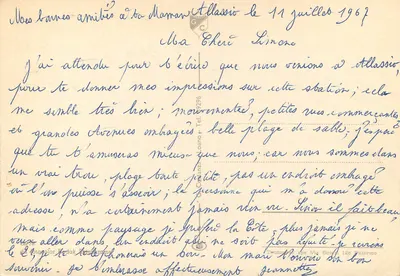 Mes bonnes amitiés à ta Maman Alassio le 11 juillet 1967
Ma Chère Simone
J'ai attendu pour t'écrire que nous venions à Alassio,
pour te donner mes impressions sur cette station; cela
me semble très bien; mouvementée, petites rues commerçantes,
et grandes Avenues ombragées belle plage de sable; j'espère
que tu t'amuseras mieux que nous; car nous sommes dans
un vrai trou, plage toute petite, pas un endroit ombragé
où l'on puisse s'asseoir; la personne qui m'a donné cette
adresse, n'a certainement jamais rien vu. Sinon il fait beau
mais comme paysage je préfère la Côte, plus jamais je ne
veux aller dans un endroit que ne soit pas
le 21, je te téléphonerai un soir. Mon mari t'envoie son bon
souvenir. Je t'embrasse affectueusement Jeannette